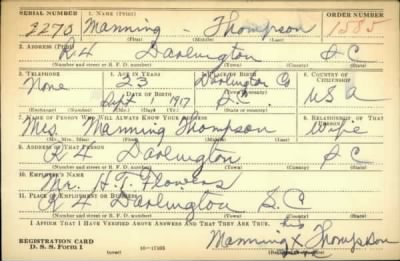 SERIAL NUMBER 1. NAME (Print) ORDER NUMBER
3270 Manning - Thompson 1585
(First) (Middle) (Last)
2. ADDRESS (Print)
R4 Darlington S C
(Number and street or R. F. D. number) (Town) (County) (State)
3. TELEPHONE 4. AGE IN YEARS 5. PLACE OF BIRTH 6. COUNTRY OF CITIZENSHIP
None 23 Darlington Co
DATE OF BIRTH (Town or county)
Sept 1917 S.C. U S A
(Exchange) (Number) (Mo.) (Day) (Yr.) (State or country)
7. NAME OF PERSON WHO WILL ALWAYS KNOW YOUR ADDRESS 8. RELATIONSHIP OF THAT PERSON
Mrs. Manning Thompson Wife
(Mr., Mrs., Miss) (First) (Middle) (Last)
9. ADDRESS OF THAT PERSON
R 4 Darlington S C
(Number and street or R. F. D. number) (Town) (County) (State)
10. EMPLOYER'S NAME
Mr. H. T. Flowers
11. PLACE OF EMPLOYMENT OR BUSINESS
R 4 Darlington S.C
(Number and street or R. F. D. number) (Town) (County) (State)
I AFFIRM THAT I HAVE VERIFIED ABOVE ANSWERS AND THAT THEY ARE TRUE.
his
REGISTRATION CARD Manning X Thompson
D. S. S. FORM 1 16-17105